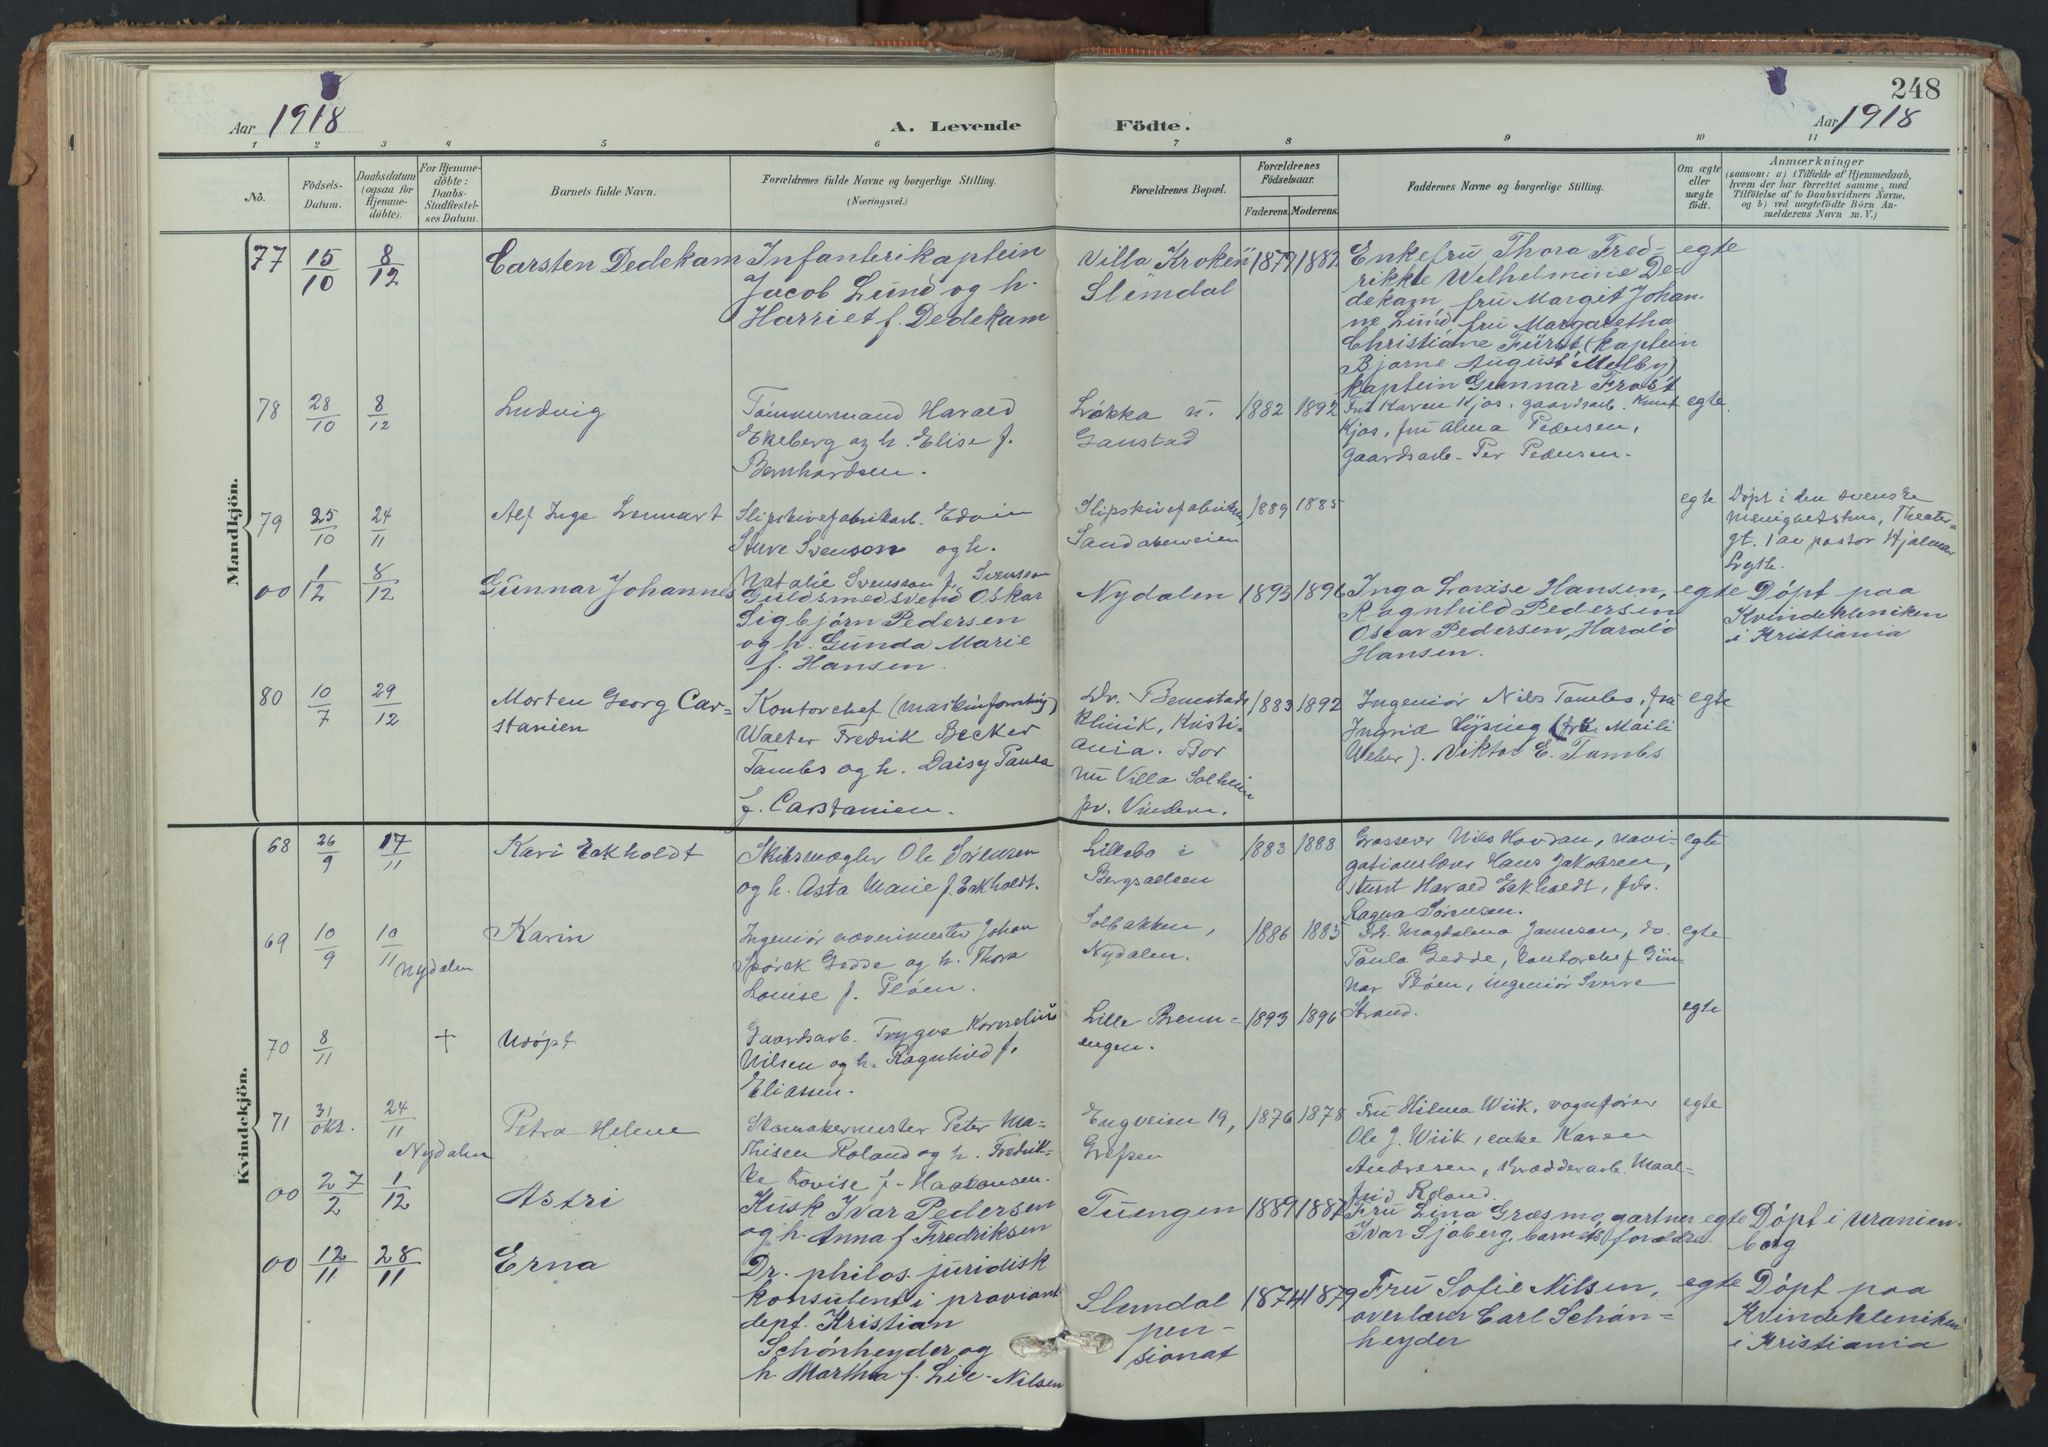 248
Aar 1918
A. Levende Födte.
Aar 1918
1 2 3 4 5 6 7 8 9 10 11
No.
Födsels-
Datum.
Daabsdatum
(ogsaa for
Hjemme-
döbte).
For Hjemme-
döbte:
Daabs-
Stadfæstel-
ses Datum.
Barnets fulde Navn.
Forældrenes fulde Navne og borgerlige Stilling.
(Næringsvei.)
Forældrenes Bopæl.
Forældrenes
Födselsaar.
Faderens. Moderens.
Faddernes Navne og borgerlige Stilling.
Om ægte
eller
uægte
födt.
Anmærkninger
(saasom: a) i Tilfælde af Hjemmedaab,
hvem der har forrettet samme, med
Tilföielse af to Daabsvidners Navne,
og b) ved uægtefödte Börn An-
melderens Navn m. V.)
Mandkjön.
77 15/10 8/12 Carsten Dedekam
Infanterikaptein
Jacob Lund og h.
Harriet f. Dedekam
Villa "Kroken"
Slemdal
1879 1882
Enkefru Thora Fred-
rikke Wilhelmine De-
dekam, fru Margit Johan-
ne Lund, fru Margaretha
Christiane Fürst (kaptein
Bjarne August Melby)
kaptein Gunnar Frost
egte
78 28/10 8/12 Ludvig
Tömmermand Harald
Ekeberg og h. Elise f.
Bernhardsen.
Lökka u.
Gaustad
1882 1892
Fru Karen Kjos, gaardsarb. Knut
Kjos, fru Alma Pedersen,
gaardsarb. Per Pedersen.
egte.
79 25/10 24/11 Alf Inge Lennart
Slipskivefabrikarb. Edvin
Sture Svenson og h.
Natalie Svensson f. Svensson
Slipskivefabriken,
Sandakerveien
1889 1885
egte
Döpt i den svenske
menighetshus, Theater-
gt. 1 av pastor Hjalmar
00 1/12 8/12 Gunnar Johannes
Guldsmedsvend Oskar
Sigbjörn Pedersen
og h. Gunda Marie
f. Hansen.
Nydalen
1893 1896
Inga Lovise Hansen,
Ragnhild Pedersen
Oscar Pedersen, Harald
Hansen.
egte
Döpt paa
Kvindekliniken
i Kristiania
80 10/7 29/12 Morten Georg Car-
stanien
Kontorchef (maskinforretning)
Walter Fredrik Becker
Tambs og h. Daisy Paula
f. Carstanien.
Dr.
klinik, Kristi-
ania. Bor
nu Villa Solheim
pr. Vinderen.
1883 1892
Ingeniör Nils Tambs, fru
Ingrid (frk. Maili
Weber). Viktor E. Tambs
egte
Kvindekjön.
68 26/9 17/11 Kari Eckholdt
Skibsmægler Ole Sörensen
og h. Asta Marie f. Eckholdt.
Lillebo i
Bergsalleen
1883 1888
Grosserer Nils Hovdan, navi-
gationslærer Hans Jakobsen,
stud Harald Eckholdt, frk.
Ragna Sörensen.
egte
69 10/9 10/11 Karin
Nydalen
Ingeniör væverimester Johan
Spörck Gedde og h. Thora
Louise f. Plöen.
Solbakken,
Nydalen.
1886 1885
Frk. Magdalena Jameson, do.
Paula Gedde, kontorchef Gun-
nar Plöen, ingeniör Sverre
Strand.
egte
70 8/11 + Udöpt
Gaardsarb. Trygve Kornelius
Nilsen og h. Ragnhild f.
Eliassen.
Lille Brenn-
engen.
1893 1896
egte
71 31/okt. 24/11 Petra Helene
Nydalen
Skomakermester Peter Ma-
thisen Roland og h. Fredrik-
ke Lovise f. Haakonsen.
Engveien 19,
Grefsen
1876 1878
Fru Hilma Wiik, vognförer
Ole J. Wiik, enke Karen
Andresen, Maal-
frid Roland.
egte
00 27/2 1/12 Astri
Kusk Ivar Pedersen
og h. Anna f. Fredriksen
Tuengen
1889 1887
Fru Lina Græsmo, gartner
Ivar Sjöberg, barnets forældre.
egte
Döpt i Uranien-
borg
00 12/11 28/11 Erna
Dr. philos. juridisk
konsulent i proviant
dept. Kristian
Schönheyder og
h. Martha f. Lie-Nilsen
Slemdal
pen-
sionat
1874 1879
Fru Sofie Nilsen,
overlærer Carl Schön-
heyder
egte
Döpt paa
Kvindekliniken
i Kristiania